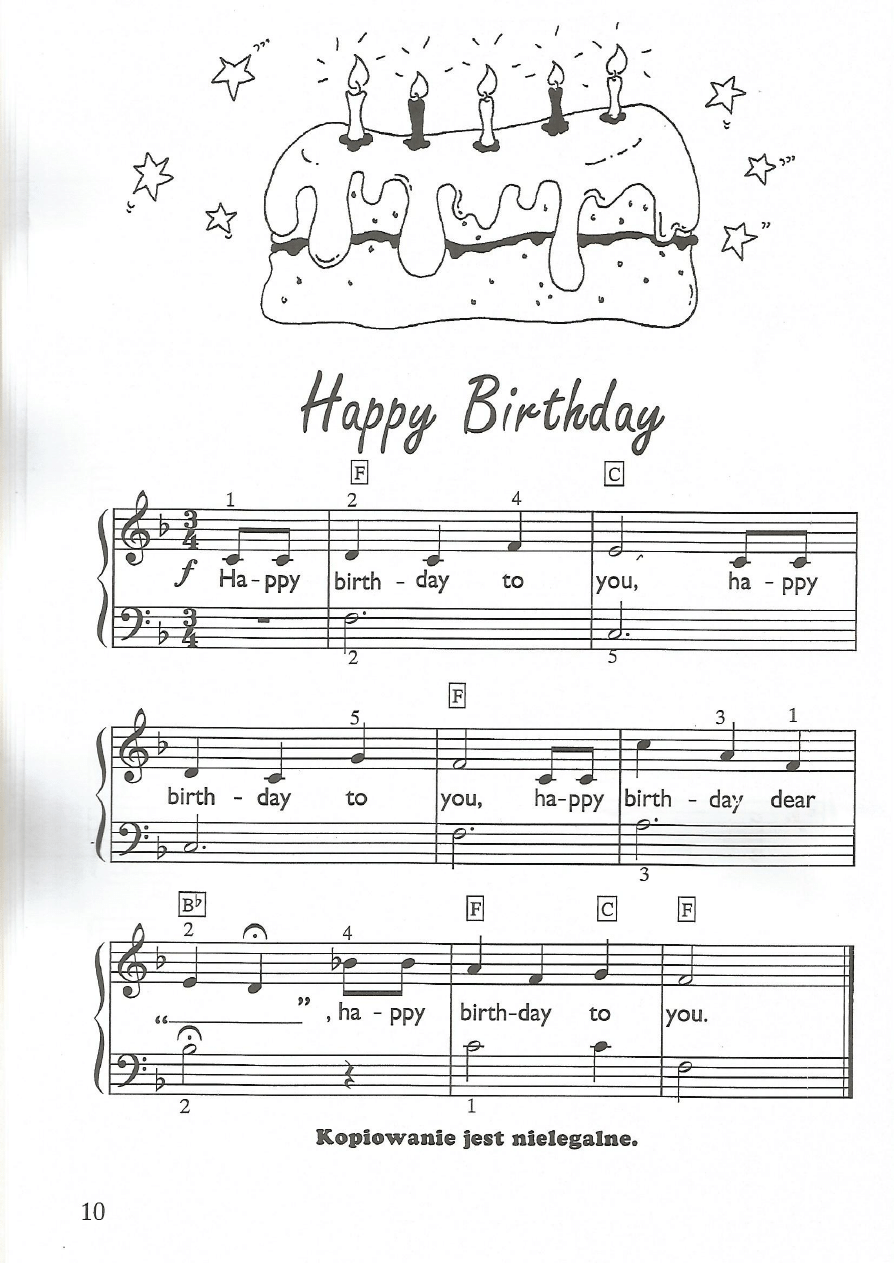 Happy Birthday
F C
1 2 4
3 4
f Ha - ppy birth - day to you, ha - ppy
3 4
2 5
F
5 3 1
birth - day to you, ha-ppy birth - day dear
3
B♭ F C F
2 4
“__________” , ha - ppy birth-day to you.
2 1
Kopiowanie jest nielegalne.
10